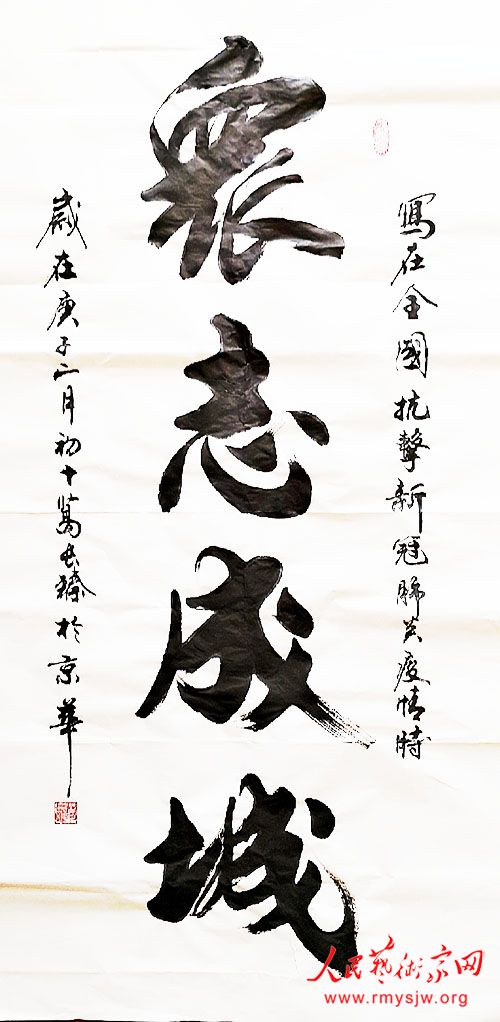 寫在全國抗擊新冠肺炎疫情時
眾志成城
歲在庚子二月初十萬長臻於京華
人民藝術家网
www.rmysjw.org